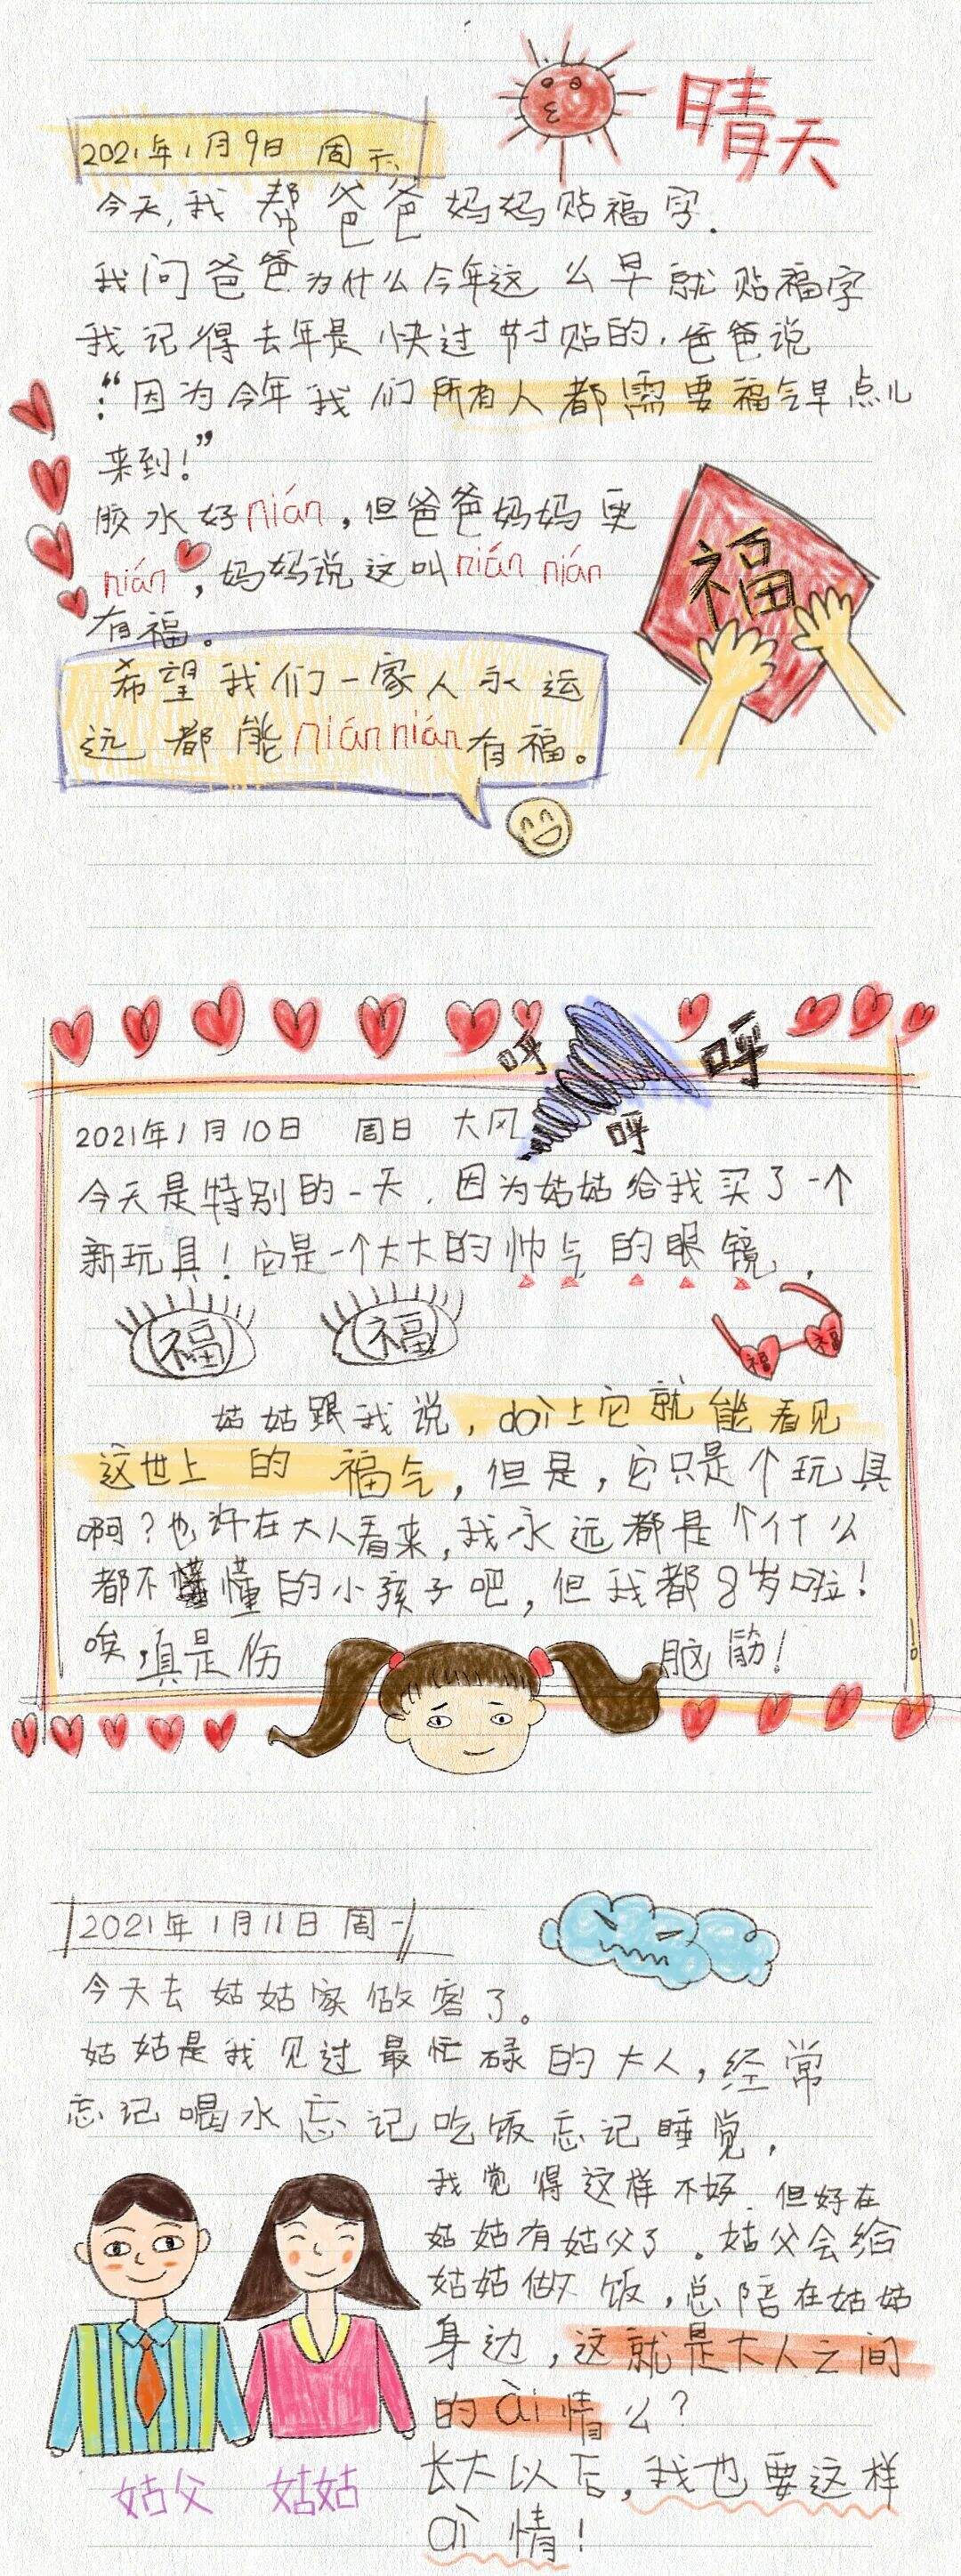 晴天
2021年1月9日 周六
今天,我帮爸爸妈妈贴福字.
我问爸爸为什么今年这么早就贴福字
我记得去年是快过节才贴的.爸爸说
:“因为今年我们所有人都需要福气早点儿
来到!”
胶水好nián,但爸爸妈妈更
nián,妈妈说这叫nián nián
有福。
福
希望我们一家人永远
远都能niánnián有福。
呼
呼
呼
2021年1月10日 周日 大风
今天是特别的一天.因为姑姑给我买了一个
新玩具!它是一个大大的帅气的眼镜.
福 福 福 福
姑姑跟我说,dài上它就能看见
这世上的福气,但是,它只是个玩具
啊?也许在大人看来,我永远都是个什么
都不懂的小孩子吧,但我都8岁啦!
唉,真是伤脑筋!
2021年1月11日 周一
今天去姑姑家做客了。
姑姑是我见过最忙碌的大人,经常
忘记喝水忘记吃饭忘记睡觉,
我觉得这样不好.但好在
姑姑有姑父了。姑父会给
姑姑做饭,总陪在姑姑
身边,这就是大人之间
的ài情么?
长大以后,我也要这样
ài情!
姑父 姑姑